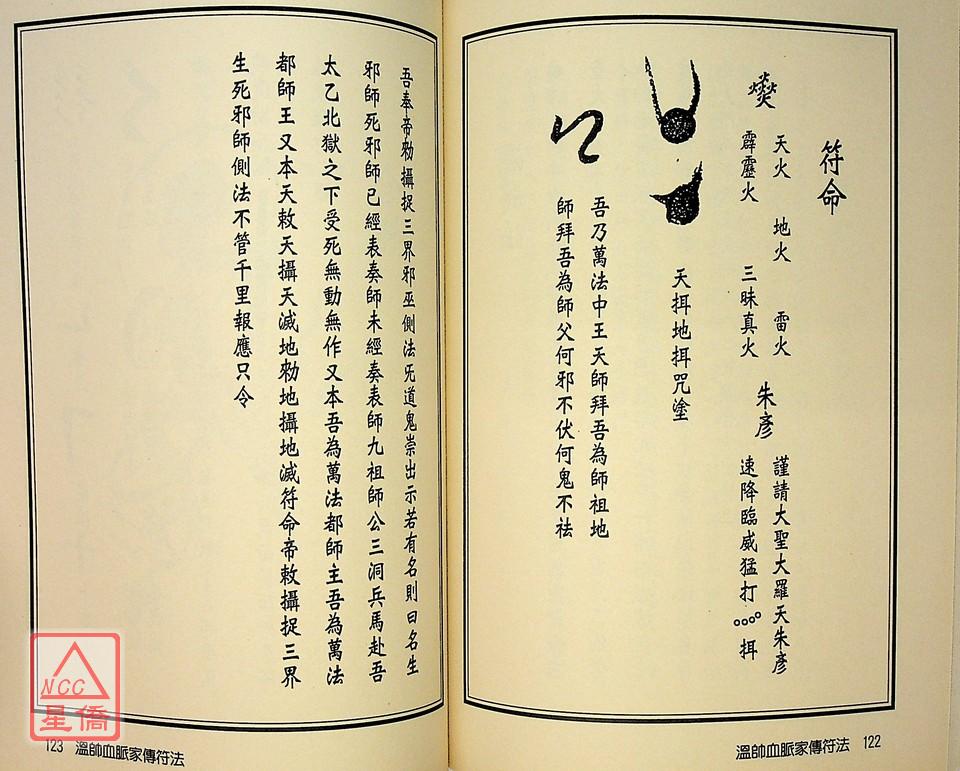 符命
燚
天火 地火 雷火
霹靂火 三昧真火
朱彥
謹請大聖大羅天朱彥
速降臨威猛打。。。。挕
天挕地挕咒塗
吾乃萬法中王天師拜吾為師祖地
師拜吾為師父何邪不伏何鬼不祛
溫帥血脈家傳符法 122
吾奉帝勑攝捉三界邪巫側法旡道鬼崇出示若有名則曰名生
邪師死邪師已經表奏師未經奏表師九祖師公三洞兵馬赴吾
太乙北獄之下受死無動無作又本吾為萬法都師主吾為萬法
都師王又本天敕天攝天滅地勑地攝地滅符命帝敕攝捉三界
生死邪師側法不管千里報應只令
123 溫帥血脈家傳符法
NCC
星僑